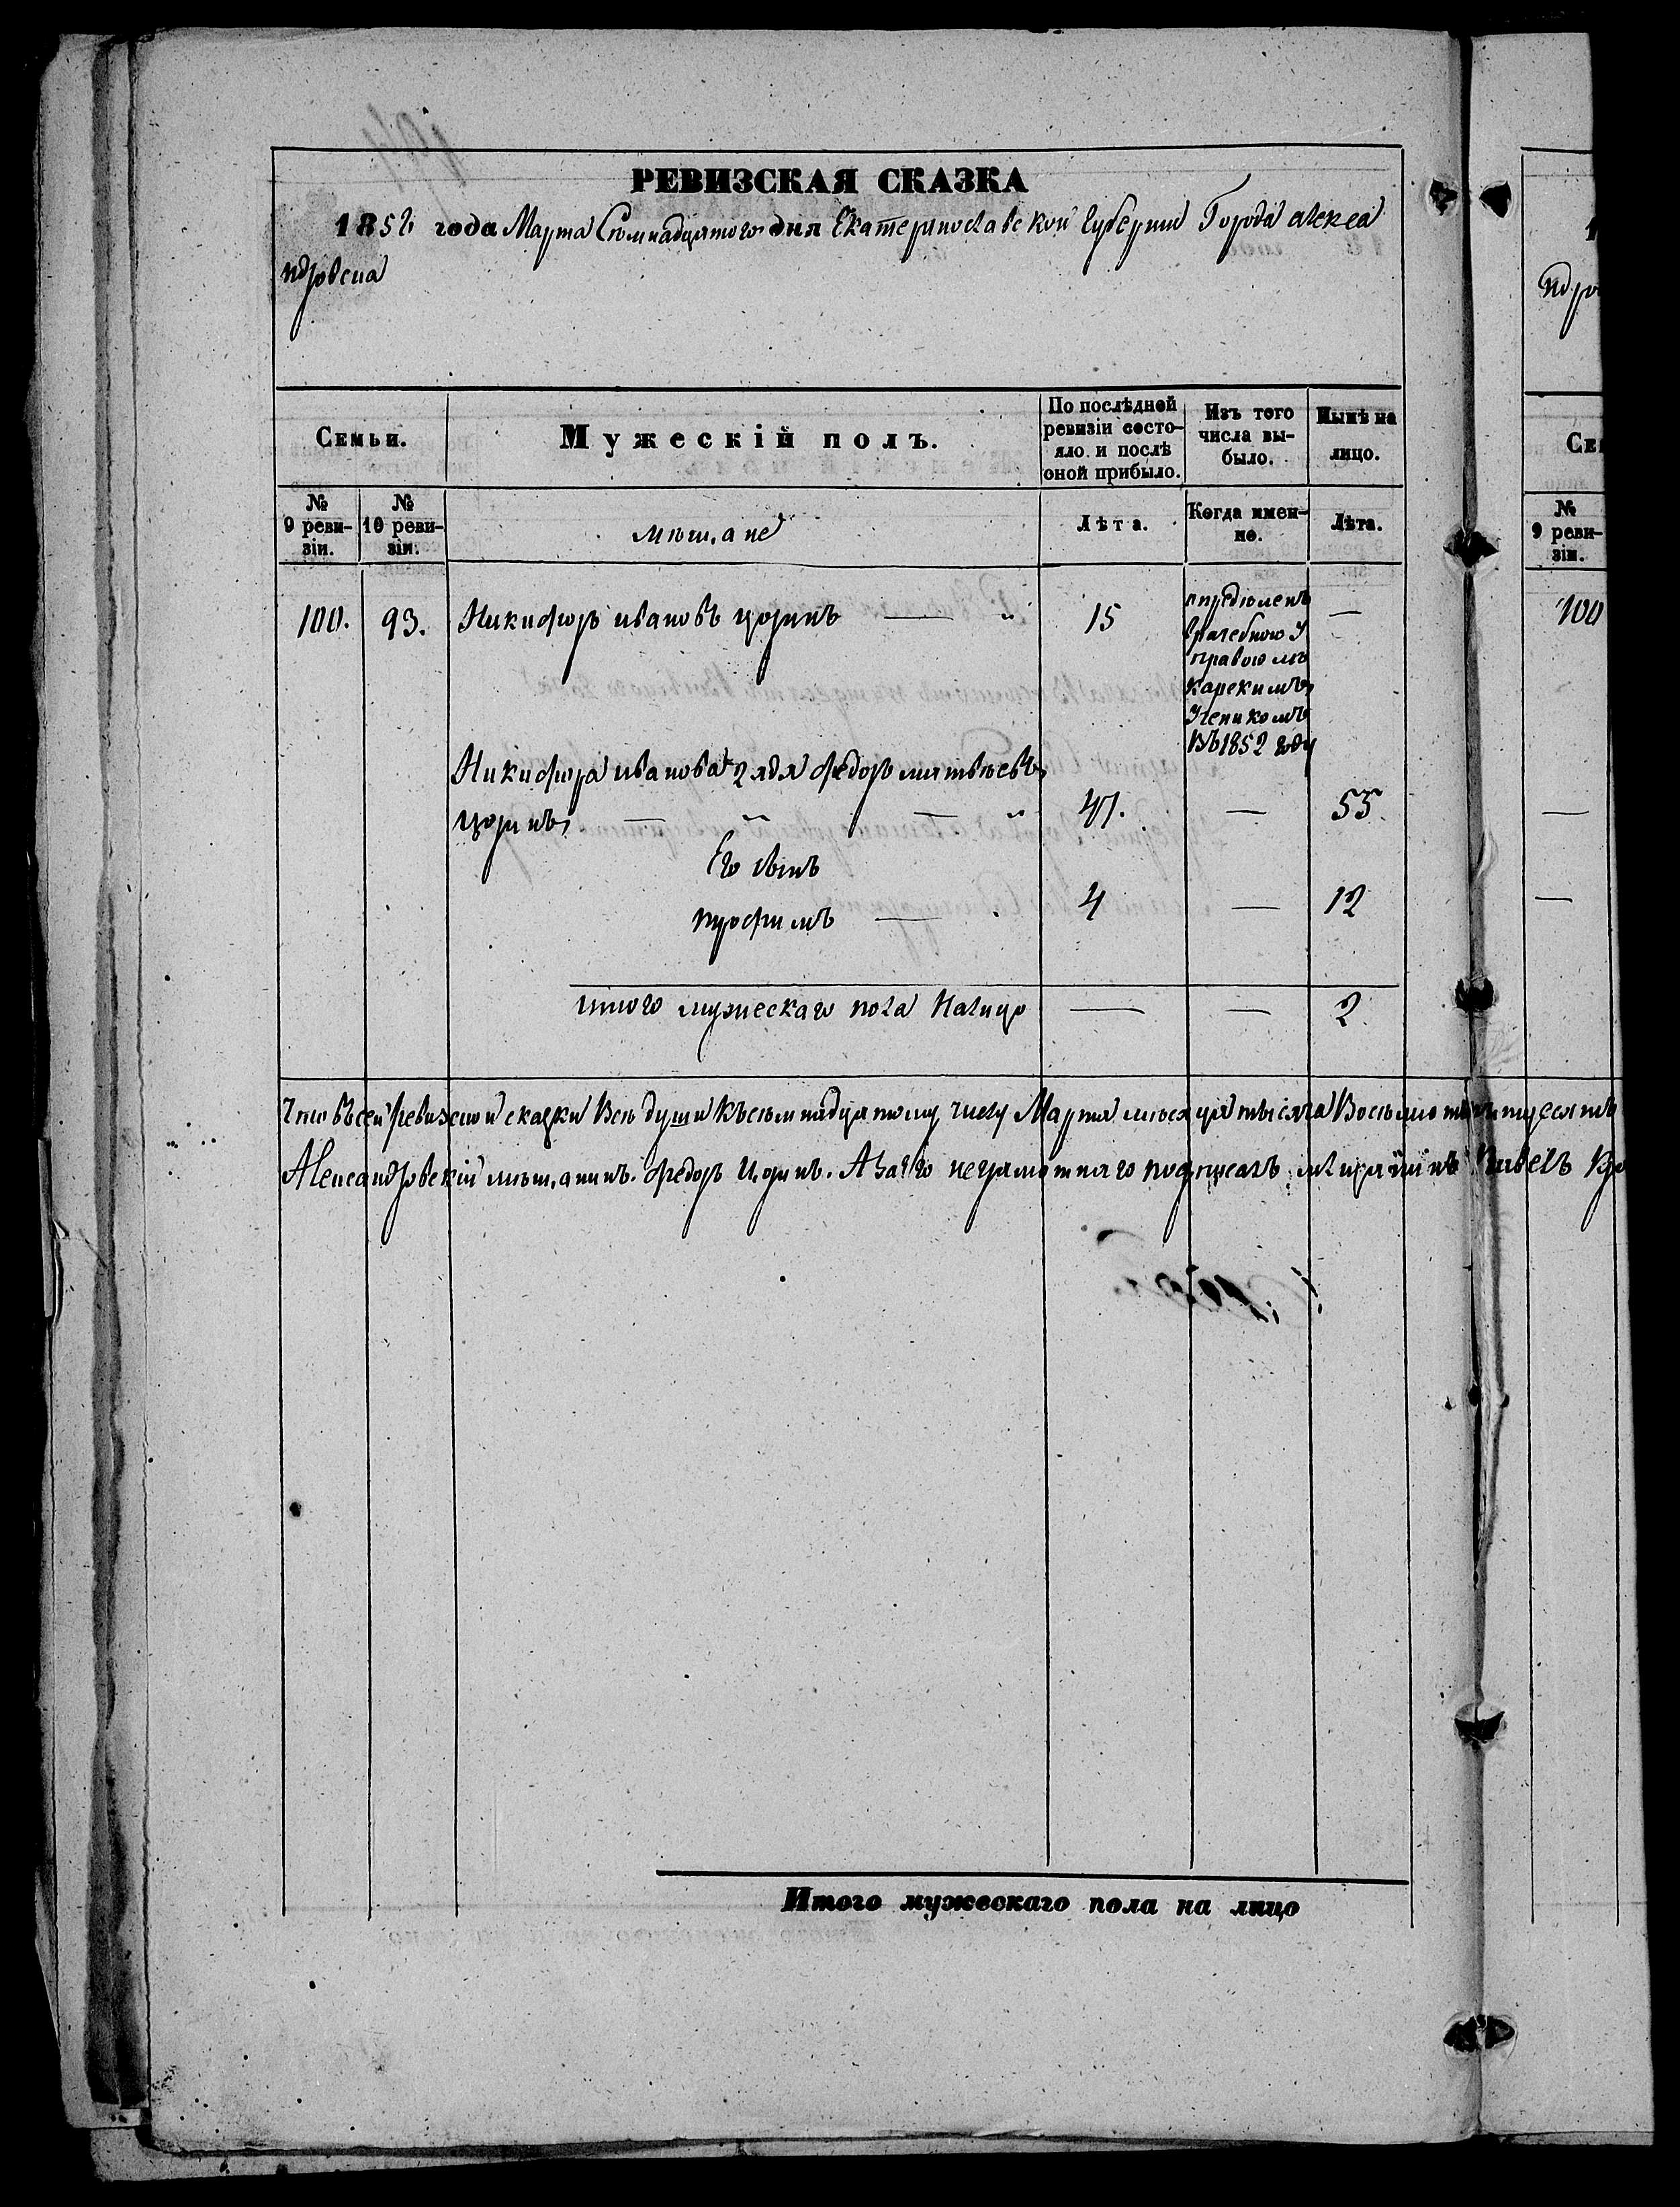 РЕВИЗСКАЯ СКАЗКА
1858 года Марта Семнадцатого дня Екатеринославской Губернии Города Алекса
ндровска
Семьи.
Мужескій полъ.
По послѣдней ревизіи состояло и послѣ оной прибыло.
Изъ того числа выбыло.
Нынѣ на лицо.
№ 9 ревизіи.
№ 10 ревизіи.
мѣщане
Лѣта.
Когда именно.
Лѣта.
100. 93. Никифоръ ивановъ цоринъ — 15 —
врачебною У
правою ле
карскимъ
Ученикомъ
Въ 1852 году
Никифора иванова 2 дядя федоръ матвѣевъ
цоринъ — — 47. — 55.
Его сынъ
трофимъ — 4 — 12
итого мужескаго пола налицо — — 2.
Что въ сей ревизской сказки Всѣ души Къ семнадцатому числу Марта мѣсяца тысяча Восемьсотъ пятдесятъ
Александровскій мѣщанинъ федоръ Цоринъ. А за его неграмотнаго подписалъ мѣщанинъ Павелъ
Итого мужескаго пола на лицо
ндро
Се
№
9 реви-
зіи.
100
—
—